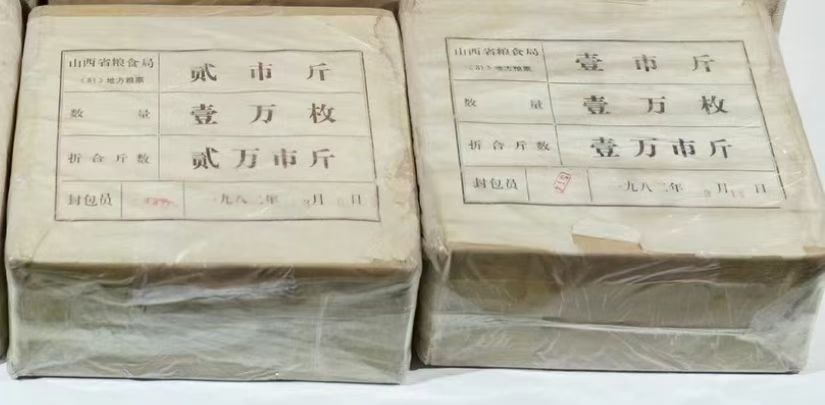 山西省粮食局 贰市斤
(81)地方粮票
数量 壹万枚
折合斤数 贰万市斤
封包员 一九八二年 月 日
山西省粮食局 壹市斤
(81)地方粮票
数量 壹万枚
折合斤数 壹万市斤
封包员 一九八二年 月 日